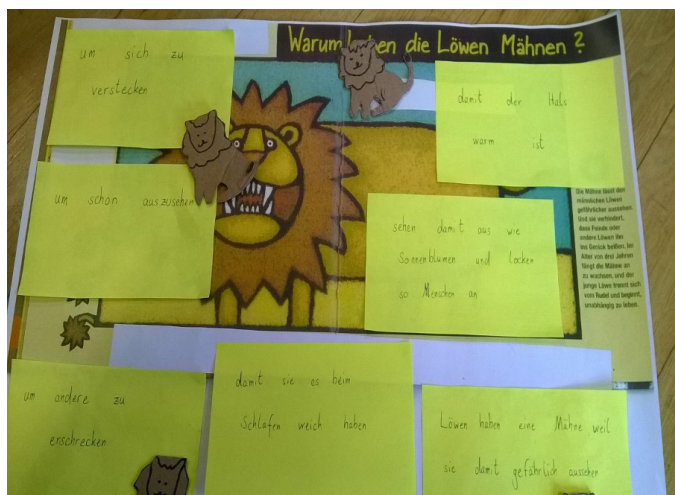 Warum haben die Löwen Mähnen ?
um sich zu
verstecken
damit der Hals
warm ist
um schön auszusehen
sehen damit aus wie
Sonnenblumen und locken
so Menschen an
Die Mähne lässt den
männlichen Löwen
gefährlicher aussehen.
Und sie verhindert,
dass Feinde oder
andere Löwen ihn
ins Genick beißen. Im
Alter von drei Jahren
fängt die Mähne an
zu wachsen, und der
junge Löwe trennt sich
vom Rudel und beginnt,
unabhängig zu leben.
um andere zu
erschrecken
damit sie es beim
Schlafen weich haben
Löwen haben eine Mähne weil
sie damit gefährlich aussehen